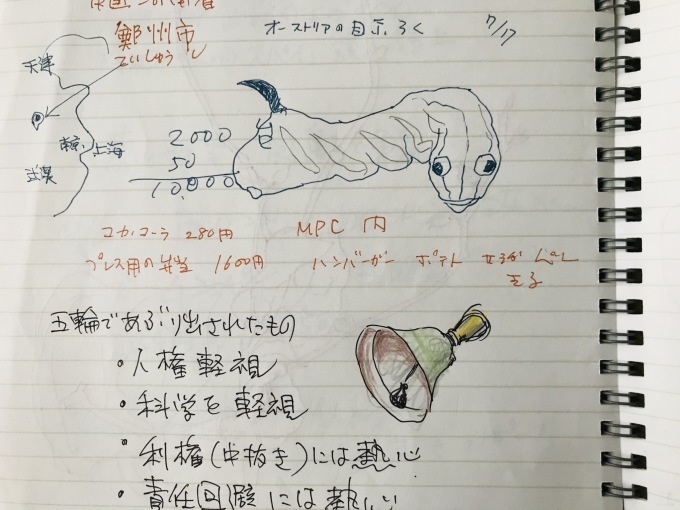 鄭州市
ていしゅうし
オーストリアの目
7/17
天津
上海
2000
50
10,000
コカ・コーラ 280円
MPC 内
プレス用の弁当 1600円
ハンバーガー ポテト
五輪であぶり出されたもの
・人権軽視
・科学を軽視
・利権(中抜き)には熱心
・責任回避には熱心